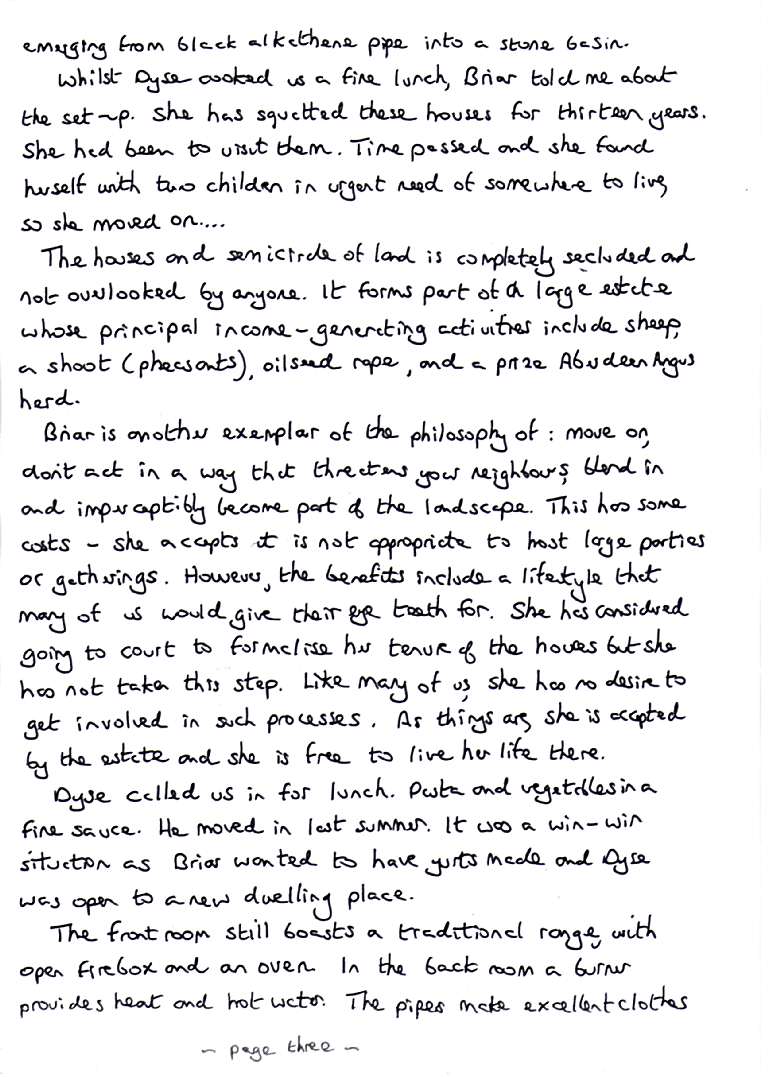 emerging from black alkathene pipe into a stone basin.
Whilst Dyse cooked us a fine lunch, Briar told me about
the set-up. She has squatted these houses for thirteen years.
She had been to visit them. Time passed and she found
herself with two children in urgent need of somewhere to live,
so she moved on....
The houses and semicircle of land is completely secluded and
not overlooked by anyone. It forms part of a large estate
whose principal income-generating activities include sheep,
a shoot (pheasants), oilseed rape, and a prize Aberdeen Angus
herd.
Briar is another exemplar of the philosophy of: move on,
don't act in a way that threatens your neighbours, blend in
and imperceptibly become part of the landscape. This has some
costs - she accepts it is not appropriate to host large parties
or gatherings. However, the benefits include a lifestyle that
many of us would give their eye teeth for. She has considered
going to court to formalise her tenure of the houses but she
has not taken this step. Like many of us, she has no desire to
get involved in such processes. As things are, she is accepted
by the estate and she is free to live her life there.
Dyse called us in for lunch. Pasta and vegetables in a
fine sauce. He moved in last summer. It was a win-win
situation as Briar wanted to have yurts made and Dyse
was open to a new dwelling place.
The front room still boasts a traditional range, with
open firebox and an oven. In the back room a burner
provides heat and hot water. The pipes make excellent clothes
- page three -